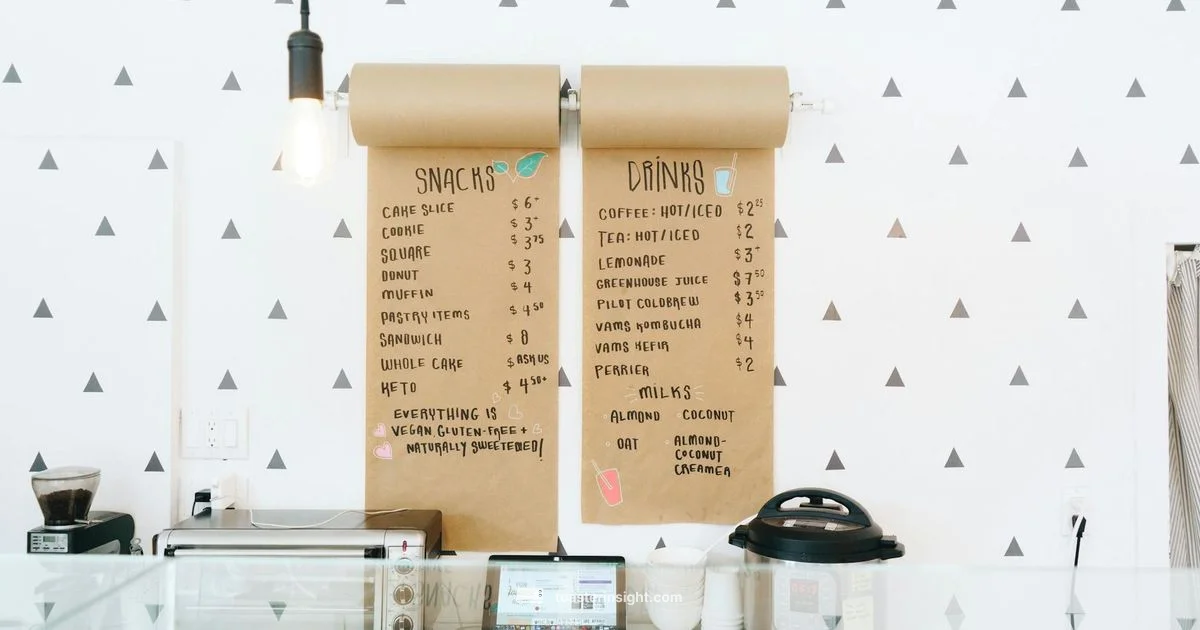 SNACKS
CAKE SLICE $6+
COOKIE $3+
SQUARE $375
DONUT $3
MUFFIN $4
PASTRY ITEMS $450
SANDWICH $8
WHOLE CAKE $ASK US
KETO $450+
EVERYTHING IS
VEGAN, GLUTEN-FREE +
NATURALLY SWEETENED!
DRINKS
COFFEE: HOT/ICED $225
TEA: HOT/ICED $2
LEMONADE $3+
GREENHOUSE JUICE $750
PILOT COLDBREW $350
VAMS KOMBUCHA $4
VAMS KEFIR $4
PERRIER $2
MILKS
ALMOND COCONUT
OAT ALMOND-
COCONUT
CREAMER
toasterinsight.com